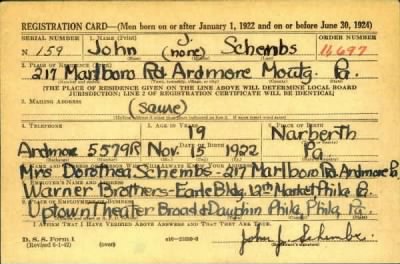 REGISTRATION CARD—(Men born on or after January 1, 1922 and on or before June 30, 1924)
SERIAL NUMBER 1. NAME (Print) ORDER NUMBER
N 159 John J. (none) Schembs 11697
2. PLACE OF RESIDENCE (Print)
217 Marlboro Rd. Ardmore Montg. Pa.
(THE PLACE OF RESIDENCE GIVEN ON THE LINE ABOVE WILL DETERMINE LOCAL BOARD
JURISDICTION; LINE 2 OF REGISTRATION CERTIFICATE WILL BE IDENTICAL)
3. MAILING ADDRESS
(same)
4. TELEPHONE 5. AGE IN YEARS 6. PLACE OF BIRTH
19 Narberth
DATE OF BIRTH
Ardmore 5579R Nov. 15 1922 Pa
Mrs. Dorothea Schembs-217 Marlboro Rd. Ardmore Pa
EMPLOYER'S NAME AND ADDRESS
Warner Brothers-Earle Bldg. 12th Market Phila Pa.
PLACE OF EMPLOYMENT OR BUSINESS
Uptown Theater Broad & Dauphin Phila, Phila Pa.
I AFFIRM THAT I HAVE VERIFIED ABOVE ANSWERS AND THAT THEY ARE TRUE.
D. S. S. Form 1
(Revised 6-1-42) (over)
John J. Schembs